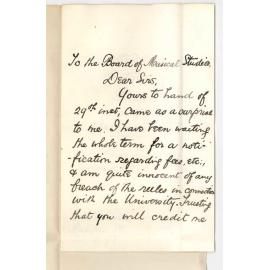 To the Board of Musical Studies,
Dear Sirs,
Yours to hand of
29th inst, came as a surprise
to me. I have been waiting
the whole term for a noti-
-fication regarding fees, etc.,
& am quite innocent of any
breach of the rules in connection
with the University. Trusting
that you will credit me